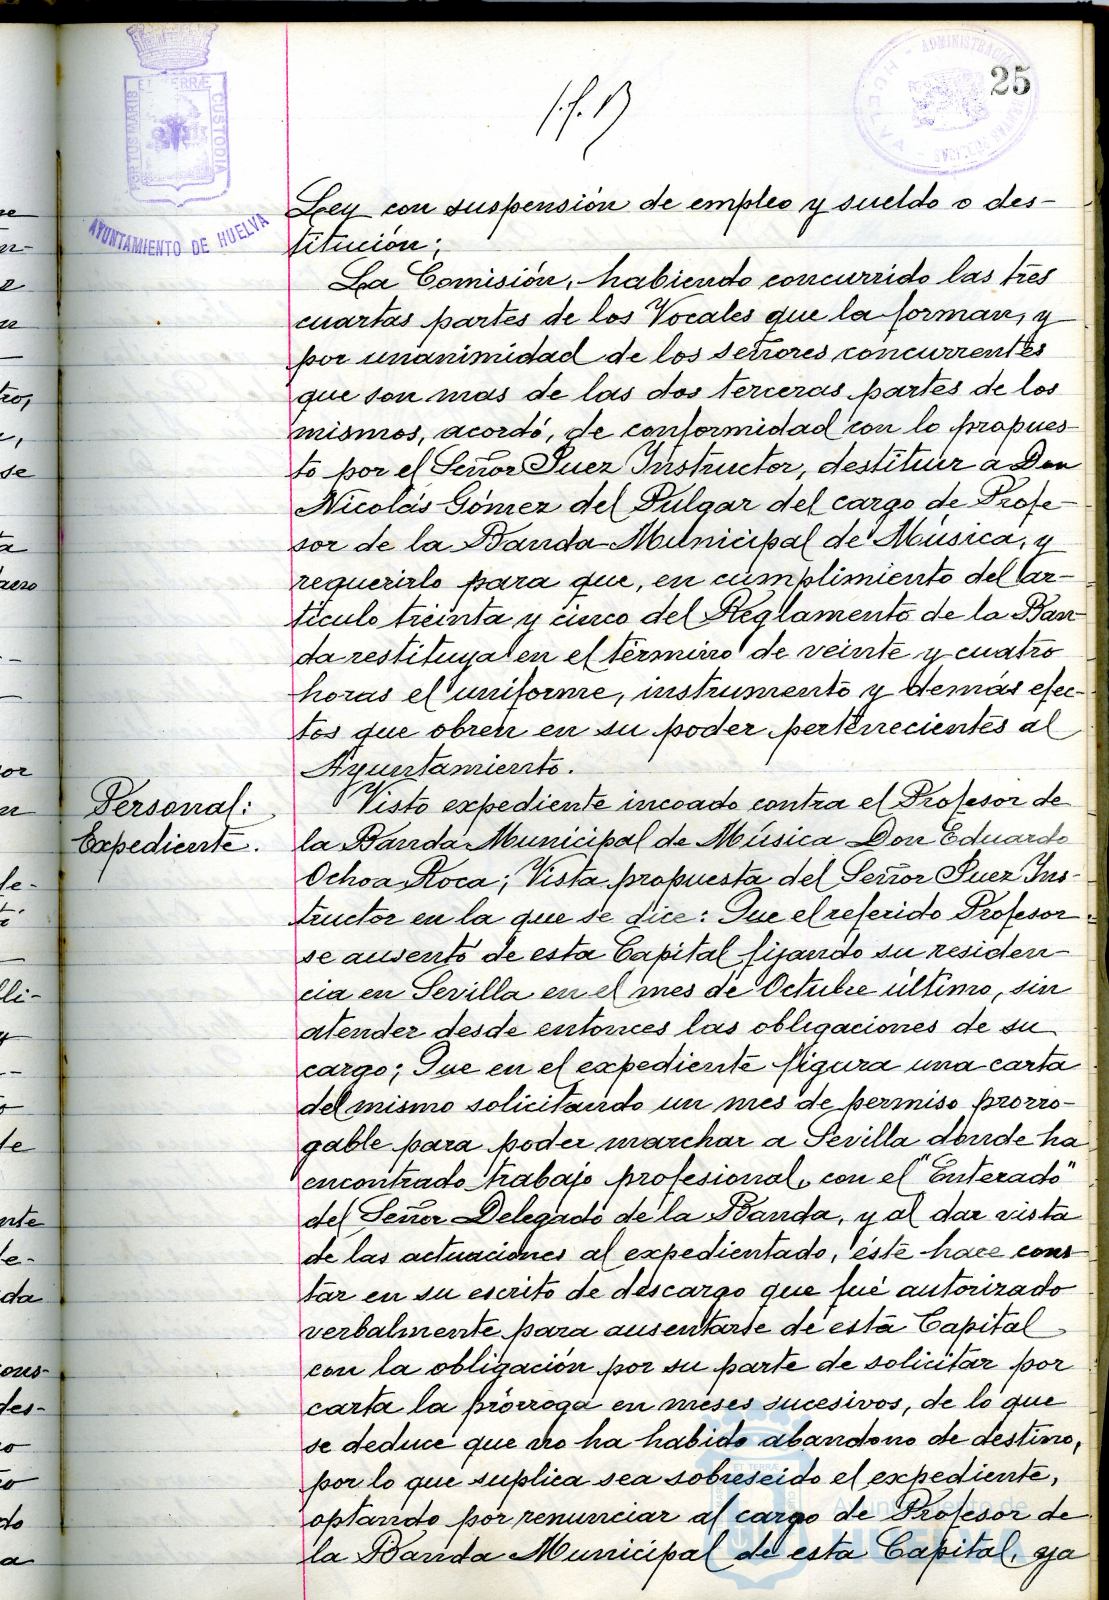 25
PORTUS MARIS ET TERRÆ CUSTODIA
AYUNTAMIENTO DE HUELVA
Ley con suspensión de empleo y sueldo o des-
titución;
La Comisión, habiendo concurrido las tres
cuartas partes de los Vocales que la forman, y
por unanimidad de los señores concurrentes
que son mas de las dos terceras partes de los
mismos, acordó, de conformidad con lo propues-
to por el Señor Juez Instructor, destituir a Don
Nicolás Gómez del Pulgar del cargo de Profe-
sor de la Banda Municipal de Música, y
requerirlo para que, en cumplimiento del ar-
tículo treinta y cinco del Reglamento de la Ban-
da restituya en el término de veinte y cuatro
horas el uniforme, instrumento y demás efec-
tos que obren en su poder pertenecientes al
Ayuntamiento.
Personal:
Expediente.
Visto expediente incoado contra el Profesor de
la Banda Municipal de Música Don Eduardo
Ochoa Roca; Vista propuesta del Señor Juez Ins-
tructor en la que se dice: Que el referido Profesor
se ausentó de esta Capital fijando su residen-
cia en Sevilla en el mes de Octubre último, sin
atender desde entonces las obligaciones de su
cargo; Que en el expediente figura una carta
del mismo solicitando un mes de permiso prorro-
gable para poder marchar a Sevilla donde ha
encontrado trabajo profesional, con el "Enterado"
del Señor Delegado de la Banda, y al dar vista
de las actuaciones al expedientado, éste hace cons
tar en su escrito de descargo que fué autorizado
verbalmente para ausentarse de esta Capital
con la obligación por su parte de solicitar por
carta la prórroga en meses sucesivos, de lo que
se deduce que no ha habido abandono de destino,
por lo que suplica sea sobreseido el expediente,
optando por renunciar al cargo de Profesor de
la Banda Municipal de esta Capital, ya
Ayuntamiento de
HUELVA